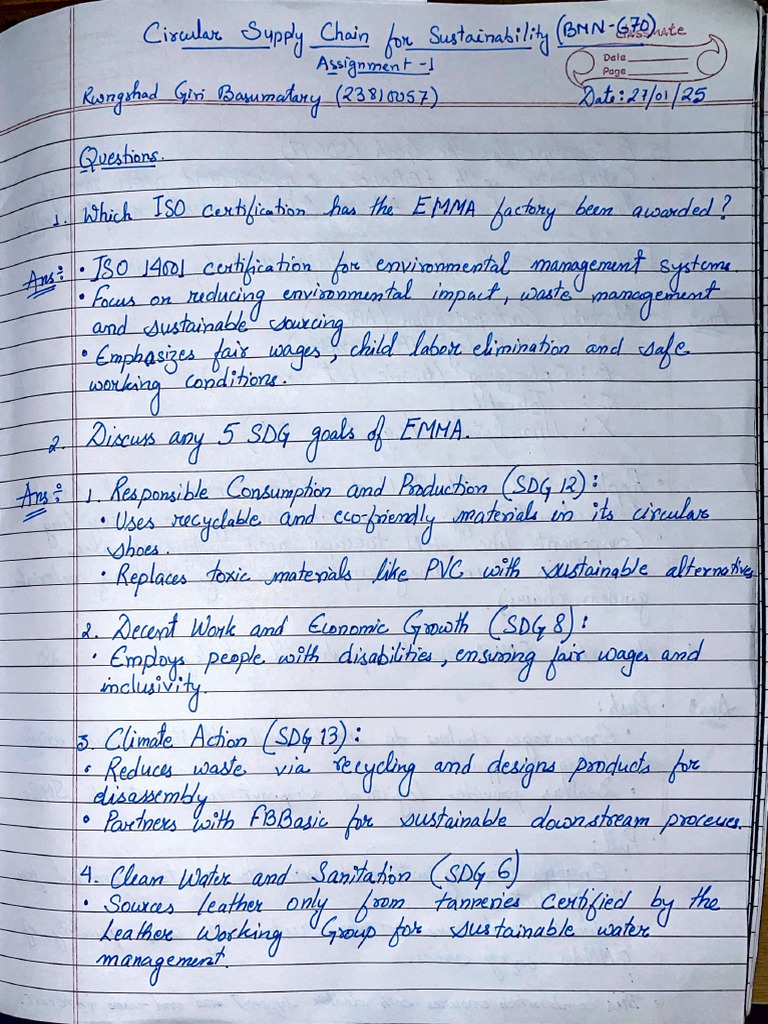 Circular Supply Chain for Sustainability (BMN-670)
classmate
Assignment -1
Date
Page
Rwngshad Giri Basumatary (23810057)
Date: 27/01/25
Questions.
1. Which ISO certification has the EMMA factory been awarded?
Ans: • ISO 14001 certification for environmental management systems.
• Focus on reducing environmental impact, waste management
and sustainable sourcing
• Emphasizes fair wages, child labor elimination and safe
working conditions.
2. Discuss any 5 SDG goals of EMMA.
Ans: 1. Responsible Consumption and Production (SDG 12):
• Uses recyclable and eco-friendly materials in its circular
shoes.
• Replaces toxic materials like PVC with sustainable alternatives
2. Decent Work and Economic Growth (SDG 8):
• Employs people with disabilities, ensuring fair wages and
inclusivity.
3. Climate Action (SDG 13):
• Reduces waste via recycling and designs products for
disassembly
• Partners with FBBasic for sustainable downstream processes.
4. Clean Water and Sanitation (SDG 6)
• Sources leather only from tanneries certified by the
Leather Working Group for sustainable water
management.